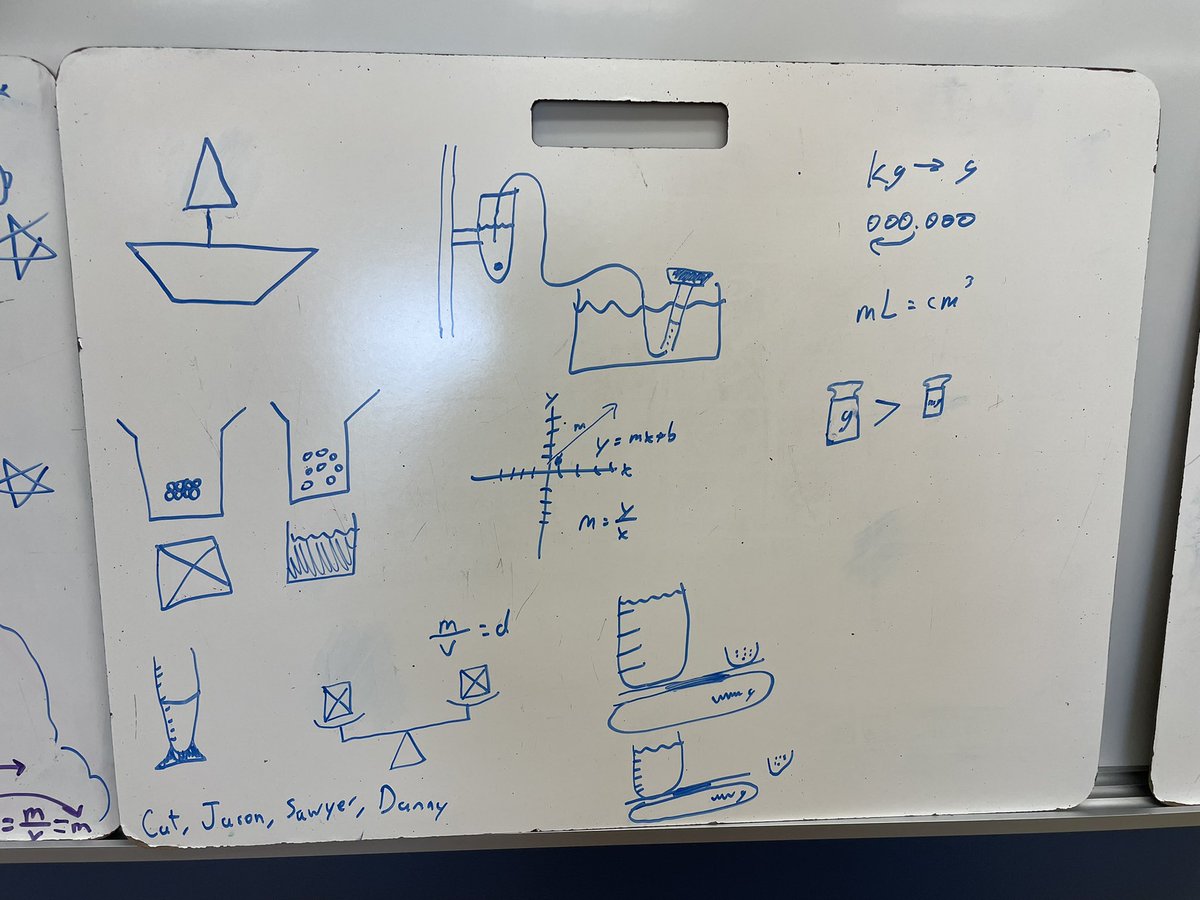 kg → g
000.000
mL = cm³
g > mg
y
m
y = mx+b
x
m = y/x
m/v = d
g
g
Cat, Jason, Sawyer, Danny
= m/v = m